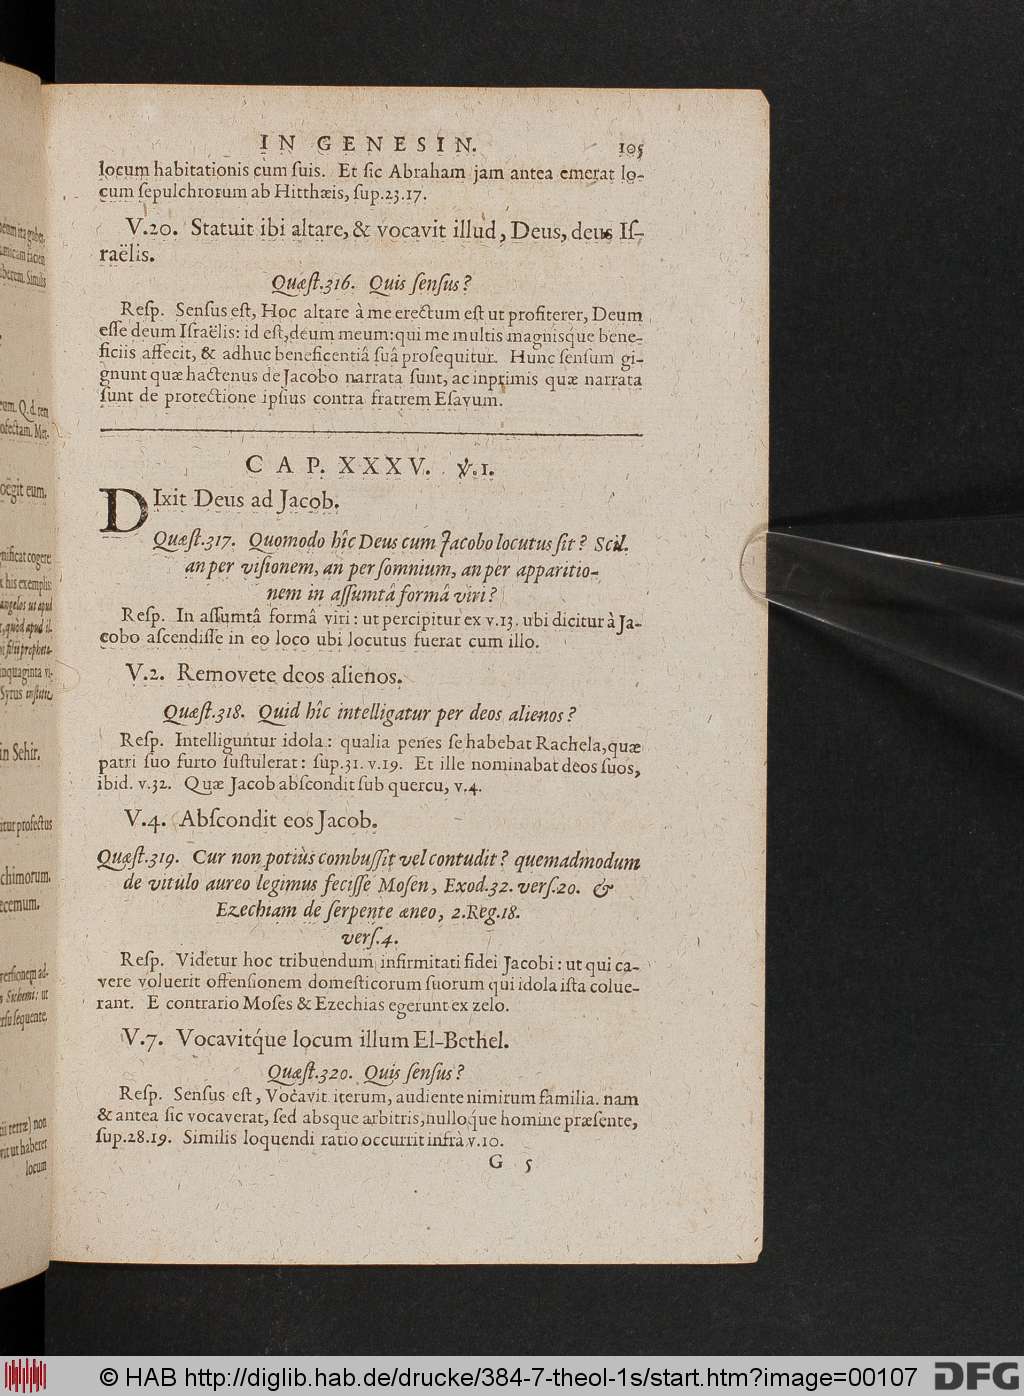 IN GENESIN. 105
locum habitationis cùm ſuis. Et ſic Abraham jam antea emerat lo-
cum ſepulchrorum ab Hitthæis, ſup.23.17.
V.20. Statuit ibi altare, & vocavit illud, Deus, deus Iſ-
raëlis.
Quæſt.316. Quis ſenſus?
Reſp. Senſus eſt, Hoc altare à me erectum eſt ut profiterer, Deum
eſſe deum Iſraëlis: id eſt, deum meum: qui me multis magniſq́ue bene-
ficiis affecit, & adhuc beneficentiâ ſuâ proſequitur. Hunc ſenſum gi-
gnunt quæ hactenus de Jacobo narrata ſunt, ac inprimis quæ narrata
ſunt de protectione ipſius contra fratrem Eſavum.
CAP. XXXV. ℣.1.
DIxit Deus ad Jacob.
Quæſt.317. Quomodo hîc Deus cum Jacobo locutus ſit? Scil.
an per viſionem, an per ſomnium, an per apparitio-
nem in aſſumtâ formâ viri?
Reſp. In aſſumtâ formâ viri: ut percipitur ex v.13. ubi dicitur à Ja-
cobo aſcendiſſe in eo loco ubi locutus fuerat cum illo.
V.2. Removete deos alienos.
Quæſt.318. Quid hîc intelligatur per deos alienos?
Reſp. Intelliguntur idola: qualia penes ſe habebat Rachela, quæ
patri ſuo furto ſuſtulerat: ſup.31. v.19. Et ille nominabat deos ſuos,
ibid. v.32. Quæ Jacob abſcondit ſub quercu, v.4.
V.4. Abſcondit eos Jacob.
Quæſt.319. Cur non potiùs combuſſit vel contudit? quemadmodum
de vitulo aureo legimus feciſſe Moſen, Exod.32. verſ.20. &
Ezechiam de ſerpente æneo, 2.Reg.18.
verſ.4.
Reſp. Videtur hoc tribuendum infirmitati fidei Jacobi: ut qui ca-
vere voluerit offenſionem domeſticorum ſuorum qui idola iſta colue-
rant. E contrario Moſes & Ezechias egerunt ex zelo.
V.7. Vocavitq́ue locum illum El-Bethel.
Quæſt.320. Quis ſenſus?
Reſp. Senſus eſt, Vocavit iterum, audiente nimirum familia. nam
& antea ſic vocaverat, ſed absque arbitris, nulloq́ue homine præſente,
ſup.28.19. Similis loquendi ratio occurrit infrà v.10.
G 5
© HAB http://diglib.hab.de/drucke/384-7-theol-1s/start.htm?image=00107
DFG